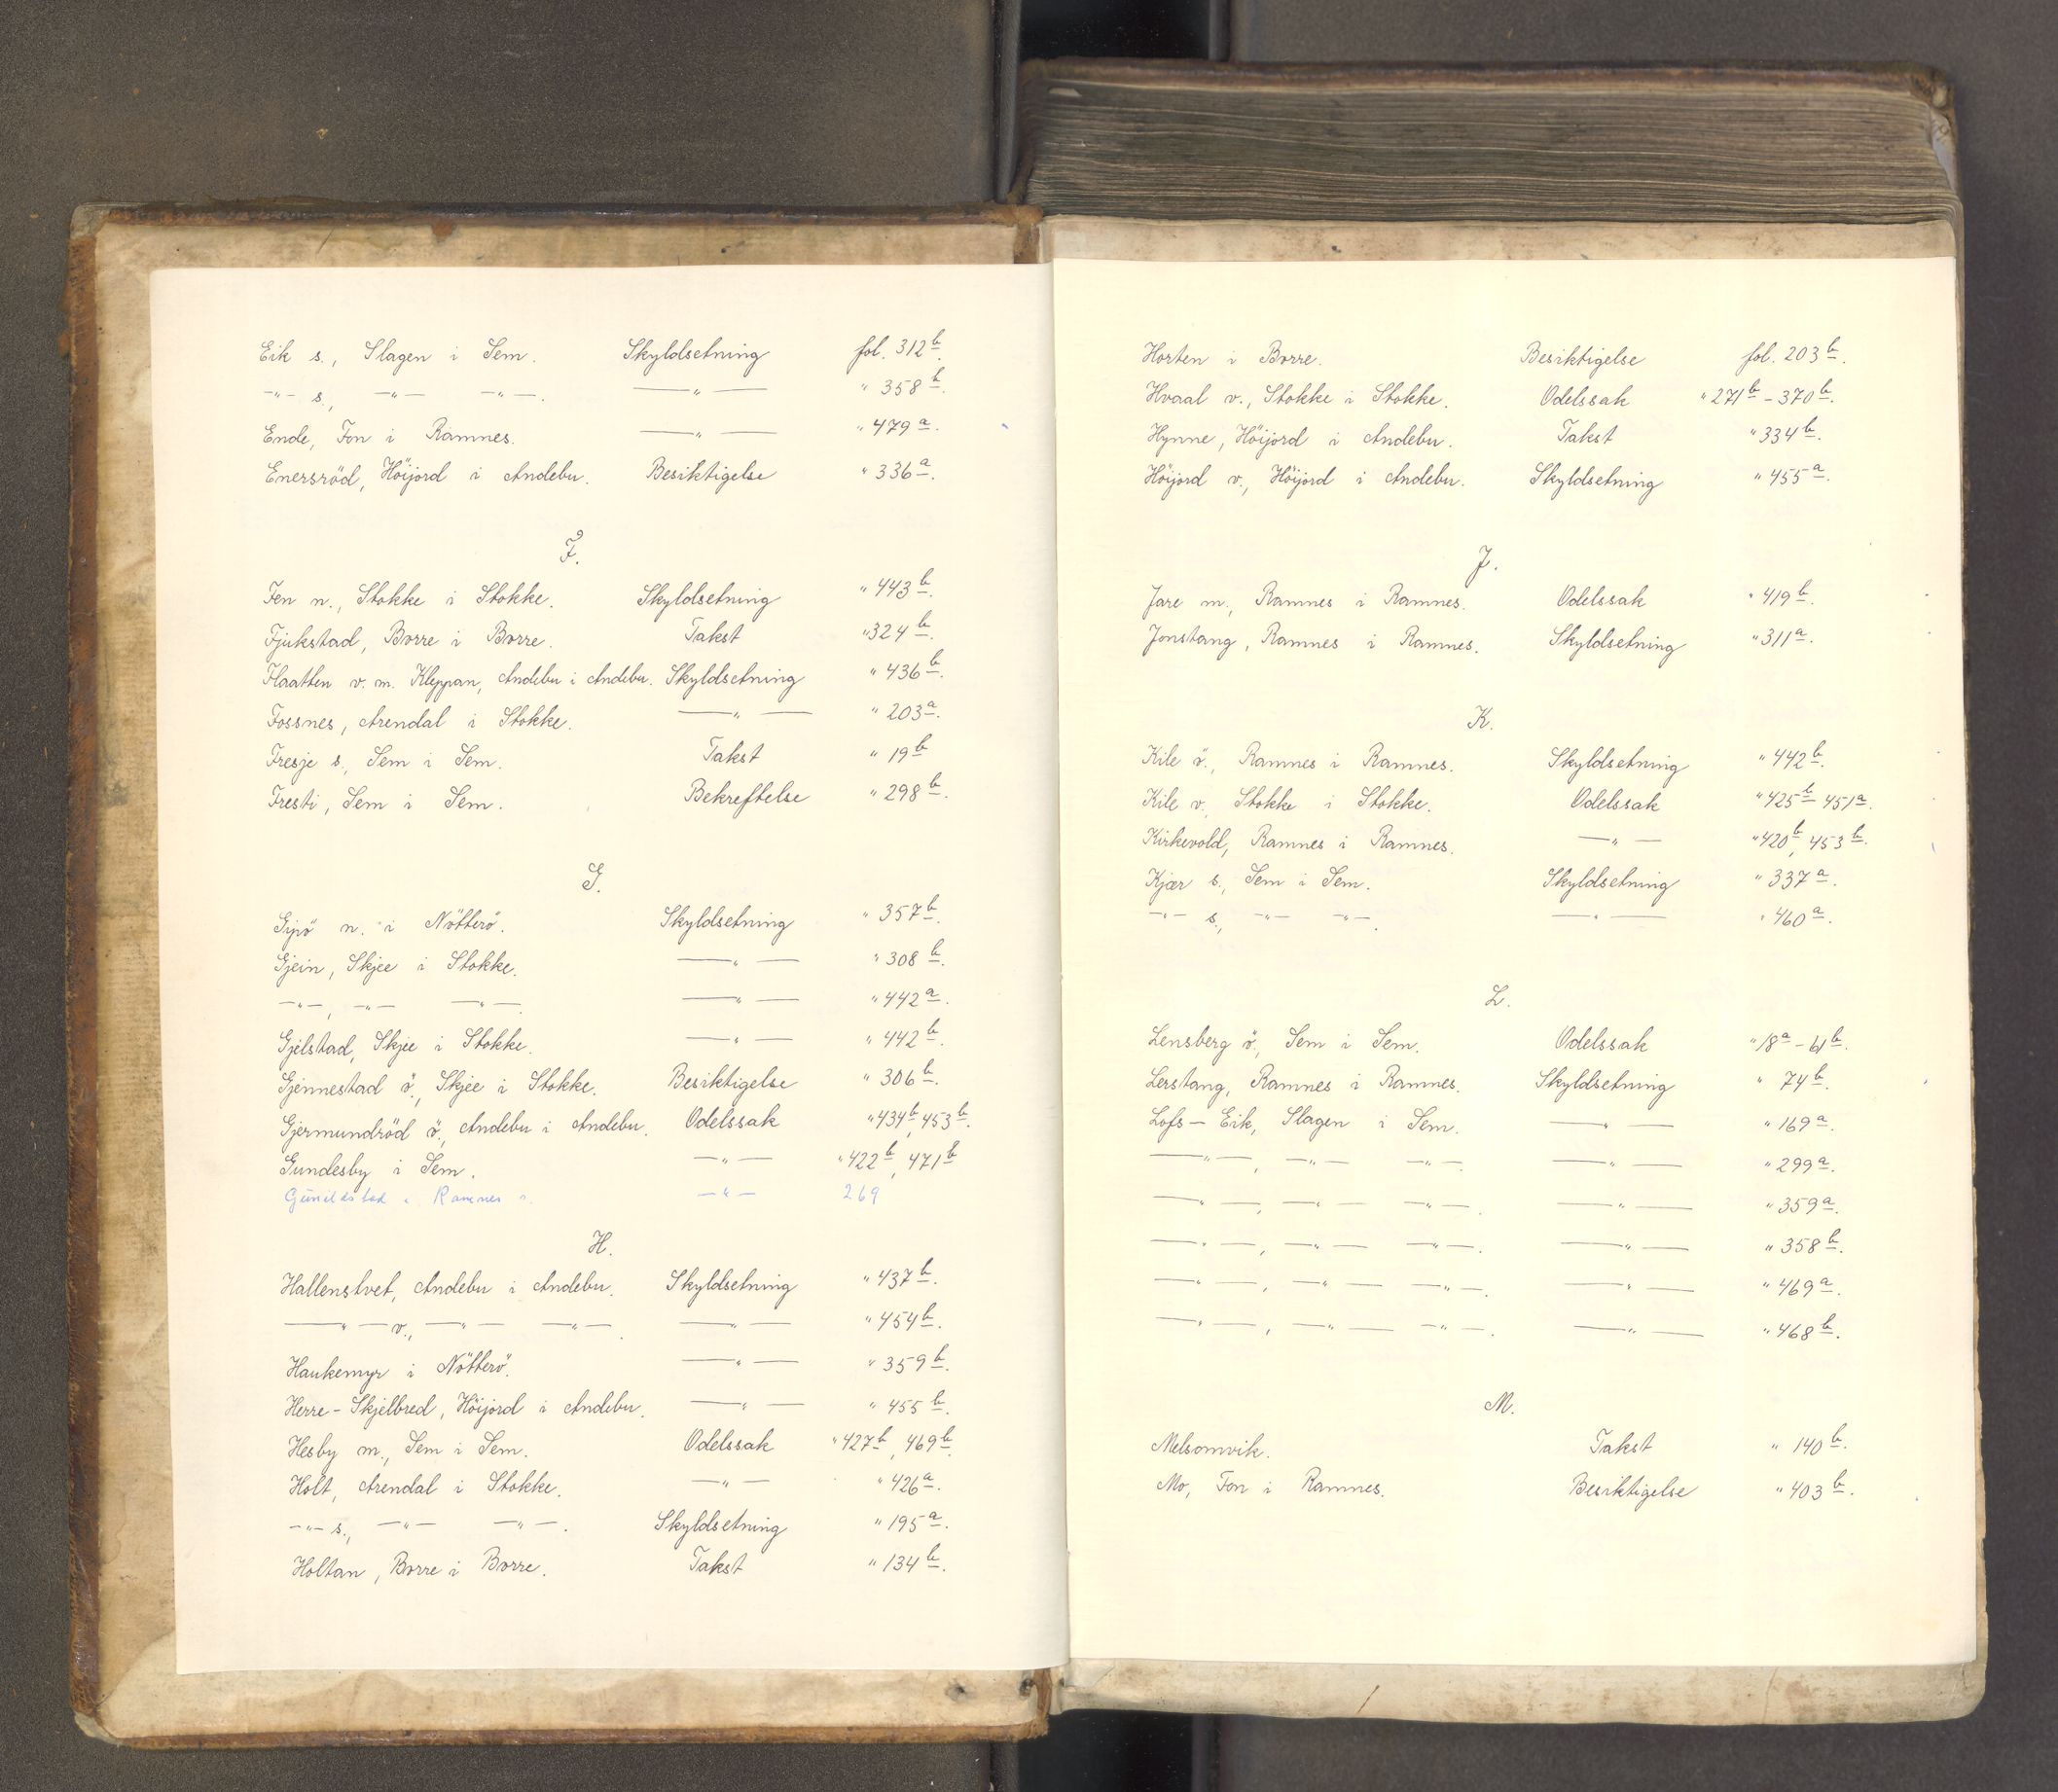 Eik s., Slagen i Sem. Skyldsetning fol. 312 b.
—"— s., —"— —"—. —"— " 358 b.
Ende, Fon i Ramnes. —"— " 479 a.
Enersröd, Höijord i Andebu. Besiktigelse " 336 a.
F.
Fen n., Stokke i Stokke. Skyldsetning " 443 b.
Fjukstad, Borre i Borre. Takst " 324 b.
Flaatten v. m. Kleppan, Andebu i Andebu. Skyldsetning " 436 b.
Fossnes, Arendal i Stokke. —"— " 203 a.
Fresje s., Sem i Sem. Takst " 19 b
Fresti, Sem i Sem. Bekreftelse " 298 b.
G.
Gipö n. i Nötterö. Skyldsetning " 357 b.
Gjein, Skjee i Stokke. —"— " 308 b.
—"—, —"— —"—. —"— " 442 a.
Gjelstad, Skjee i Stokke. —"— " 442 b.
Gjennestad ö., Skjee i Stokke. Besiktigelse " 306 b.
Gjermundröd ö., Andebu i Andebu. Odelssak " 434 b, 453 b.
Gundesby i Sem. —"— " 422 b, 471 b
Ramnes —"— 269
H.
Hallenstvet, Andebu i Andebu. Skyldsetning " 437 b.
—"— v., —"— —"—. —"— " 454 b.
Haukemyr i Nötterö. —"— " 359 b.
Herre-Skjelbred, Höijord i Andebu. —"— " 455 b.
Hesby m., Sem i Sem. Odelssak " 427 b, 469 b.
Holt, Arendal i Stokke. —"— " 426 a.
—"— s., —"— —"—. Skyldsetning " 195 a.
Holtan, Borre i Borre. Takst " 134 b.
Horten i Borre. Besiktigelse fol. 203 b.
Hvaal v., Stokke i Stokke. Odelssak " 271 b - 370 b.
Hynne, Höijord i Andebu. Takst " 334 b.
Höijord v., Höijord i Andebu. Skyldsetning " 455 a.
J.
Jare m., Ramnes i Ramnes. Odelssak " 419 b.
Jonstang, Ramnes i Ramnes. Skyldsetning " 311 a.
K.
Kile ö., Ramnes i Ramnes. Skyldsetning " 442 b.
Kile v., Stokke i Stokke. Odelssak " 425 b - 451 a.
Kirkevold, Ramnes i Ramnes. —"— " 420 b, 453 b.
Kjær s., Sem i Sem. Skyldsetning " 337 a.
—"— s., —"— —"—. —"— " 460 a.
L.
Lensberg ö., Sem i Sem. Odelssak " 18 a - 61 b.
Lerstang, Ramnes i Ramnes. Skyldsetning " 74 b.
Lofs - Eik, Slagen i Sem. —"— " 169 a.
—"—, —"— —"—. —"— " 299 a.
—"—, —"— —"—. —"— " 359 a.
—"—, —"— —"—. —"— " 358 b.
—"—, —"— —"—. —"— " 469 a.
—"—, —"— —"—. —"— " 468 b.
M.
Melsomvik. Takst " 140 b.
Mo, Fon i Ramnes. Besiktigelse " 403 b.